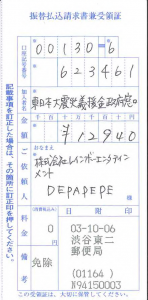 振替払込請求書兼受領証
口座記号番号
00130=6
623461
加入者名
東日本大震災義援金政府窓口
金額
¥12940
ご依頼人
おなまえ
株式会社レインボーエンタテイン
メント
DEPAPEPE
料金
(消費税込み)
0
円
備考
免除
日附印
03-10-06
渋谷東二
郵便局
(01164)
N94150003
記載事項を訂正した場合は、その箇所に訂正印を押してください。